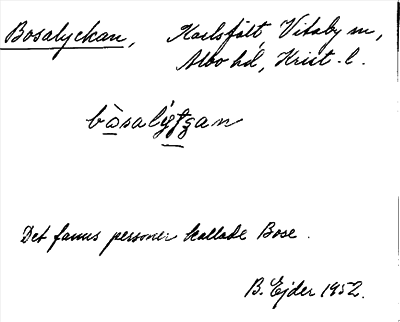 Bosalyckan, Karlsfält, Vitaby sn,
Albo hd, Krist. l.
bòsalýtʒan
Det fanns personer kallade Bose.
B. Ejder 1952.